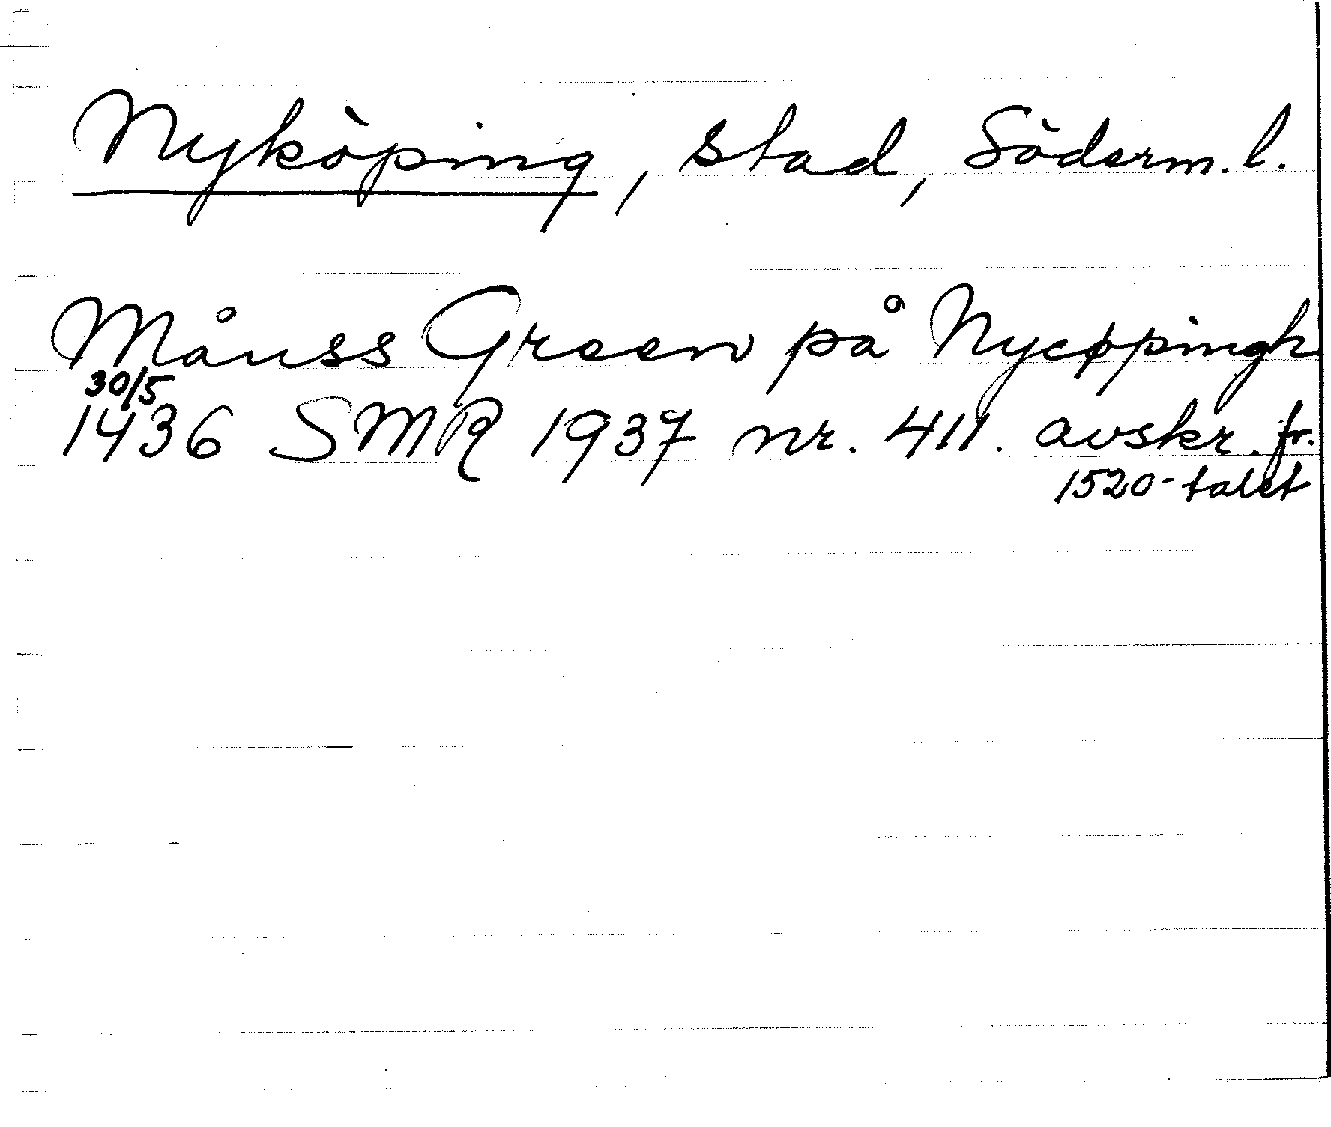 Nyköping, stad, Söderm. l.
Månss Green på Nycøppingh
30/5
1436 SMR 1937 nr. 411. avskr. fr.
1520-talet